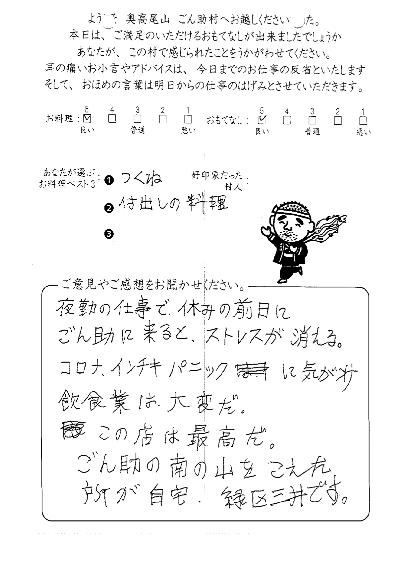 ようこそ 奥高尾山 ごん助村へお越しくださいました。
本日は、ご満足のいただけるおもてなしが出来ましたでしょうか
あなたが、この村で感じられたことをうかがわせてください。
耳の痛いお小言やアドバイスは、今日までのお仕事の反省といたします
そして、おほめの言葉は明日からの仕事のはげみとさせていただきます。
お料理: 5 4 3 2 1 おもてなし: 5 4 3 2 1
良い 普通 悪い 良い 普通 悪い
あなたが選ぶ お料理ベスト3: ❶ つくね 好印象だった 村人:
❷ 仕出しの料理
❸
ご意見やご感想をお聞かせください。
夜勤の仕事で、休みの前日に
ごん助に来ると、ストレスが消える。
コロナ、インチキパニック に気がわ
飲食業は大変だ。
この店は最高だ。
ごん助の南の山をこえた
所が自宅、緑区三井です。